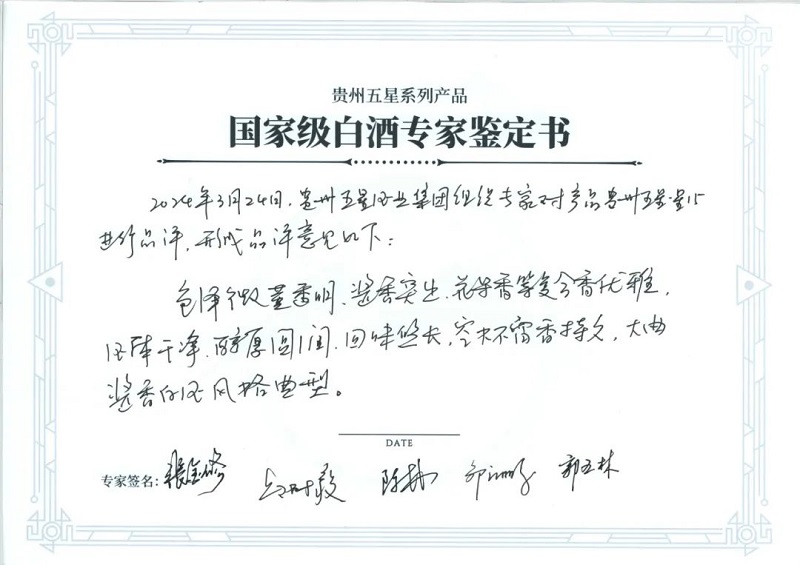 贵州五星系列产品
国家级白酒专家鉴定书
2024年3月24日，贵州五星酒业集团组织专家对产品贵州五星·星15
进行品评，形成品评意见如下：
色泽微黄透明、酱香突出、花果香等复合香优雅，
酒体干净、醇厚圆润、回味悠长，空杯留香持久，大曲
酱香白酒风格典型。
DATE
专家签名：